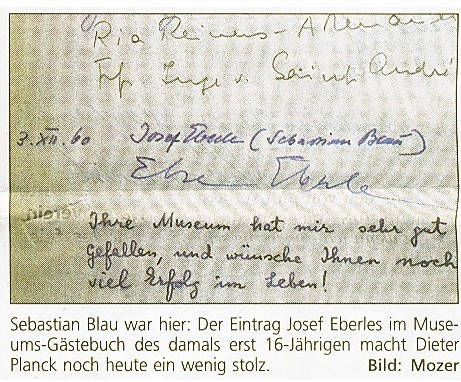 Ria Reiners-
Frf Inge v. Saint André
3. XII. 60 Josef Eberle (Sebastian Blau)
Else Eberle
Verein
Ihre Museum hat mir sehr gut
gefallen, und wünsche Ihnen noch
viel Erfolg im Leben!
Sebastian Blau war hier: Der Eintrag Josef Eberles im Muse-
ums-Gästebuch des damals erst 16-Jährigen macht Dieter
Planck noch heute ein wenig stolz. Bild: Mozer